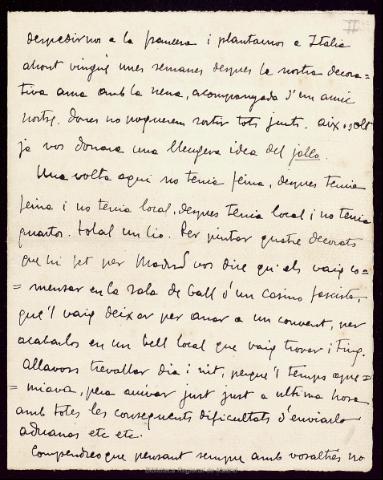 II
despedirnos a la francesa i plantarnos a Italia
ahont vingué unes semanes despues la nostra decora=
tiva ama amb la nena, acompanyada d'un amic
nostre, doncs no pogueren sortir tots junts. aixo sols
ja vos donara una lleugera idea del jollo.
Una volta aqui no tenia feina, despues tenia
feina i no tenia local, despues tenia local i no tenia
quartos. total un lio. Per pintar quatre decorats
que hi fet per Madrid vos dire qu'els vaig co=
=mensar en la sala de ball d'un casino fasciste,
que'l vaig deixar per anar a un convent, per
acabarlos en un bell local que vaig trovar i tinc.
Allavors trevallar dia i nit, perque'l temps apre=
=miava, pera arrivar just just a ultima hora
amb totes les consequents dificultats d'enviarlo
aduanas etc etc.
Compendreo que pensant sempre amb vosaltres no